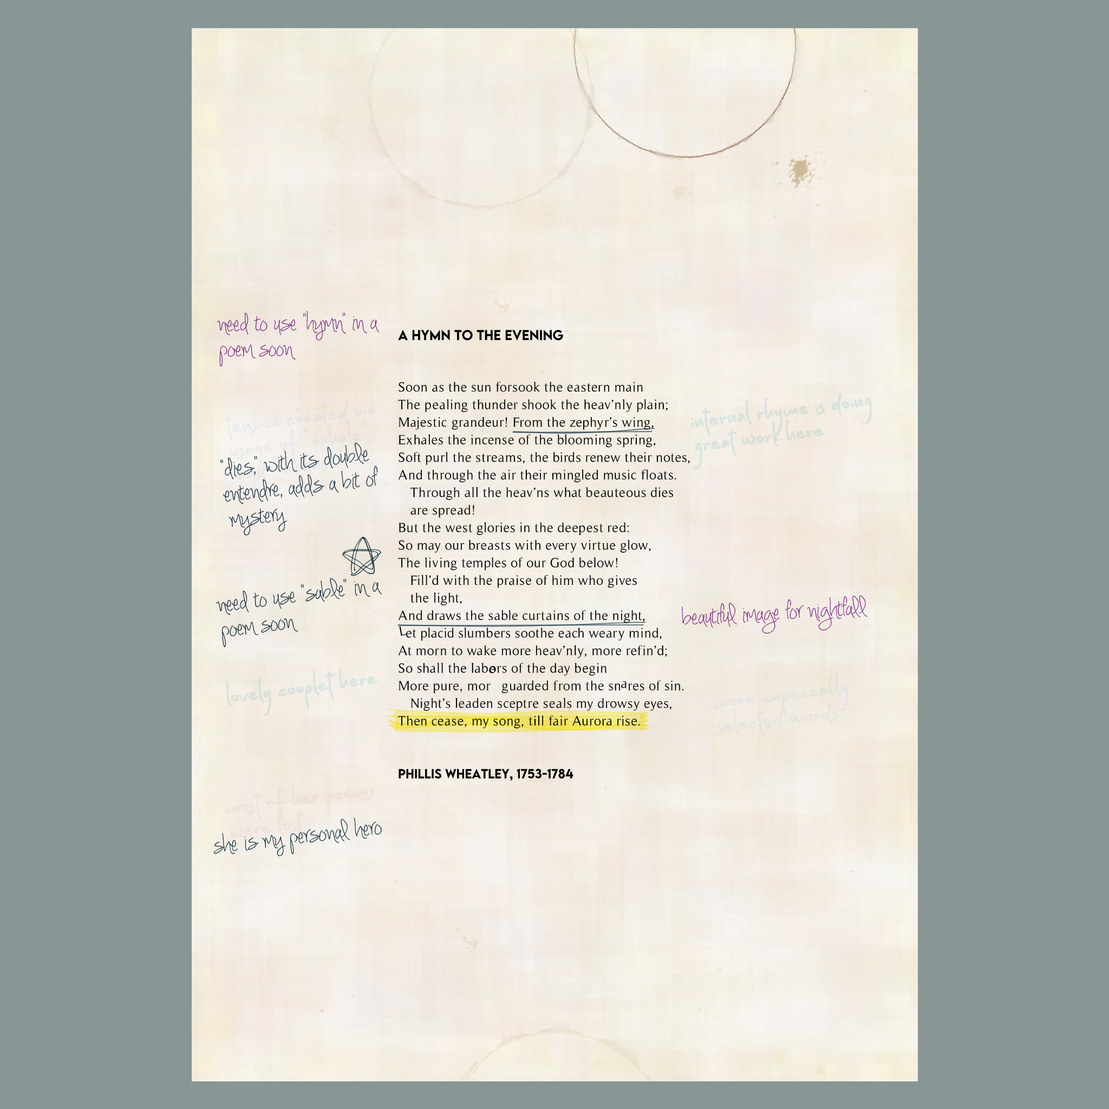 need to use "hymn" in a
poem soon
A HYMN TO THE EVENING
Soon as the sun forsook the eastern main
The pealing thunder shook the heav'nly plain;
Majestic grandeur! From the zephyr's wing,
Exhales the incense of the blooming spring,
Soft purl the streams, the birds renew their notes,
And through the air their mingled music floats.
Through all the heav'ns what beauteous dies
are spread!
But the west glories in the deepest red:
So may our breasts with every virtue glow,
The living temples of our God below!
Fill'd with the praise of him who gives
the light,
And draws the sable curtains of the night,
Let placid slumbers soothe each weary mind,
At morn to wake more heav'nly, more refin'd;
So shall the labors of the day begin
More pure, mor guarded from the snares of sin.
Night's leaden sceptre seals my drowsy eyes,
Then cease, my song, till fair Aurora rise.
PHILLIS WHEATLEY, 1753-1784
tension created via
usage of exhale
"dies," with its double
entendre, adds a bit of
mystery
need to use "sable" in a
poem soon
lovely couplet here
most of her poems
were lost
she is my personal hero
internal rhyme is doing
great work here
beautiful image for nightfall
more impeccably
selected words